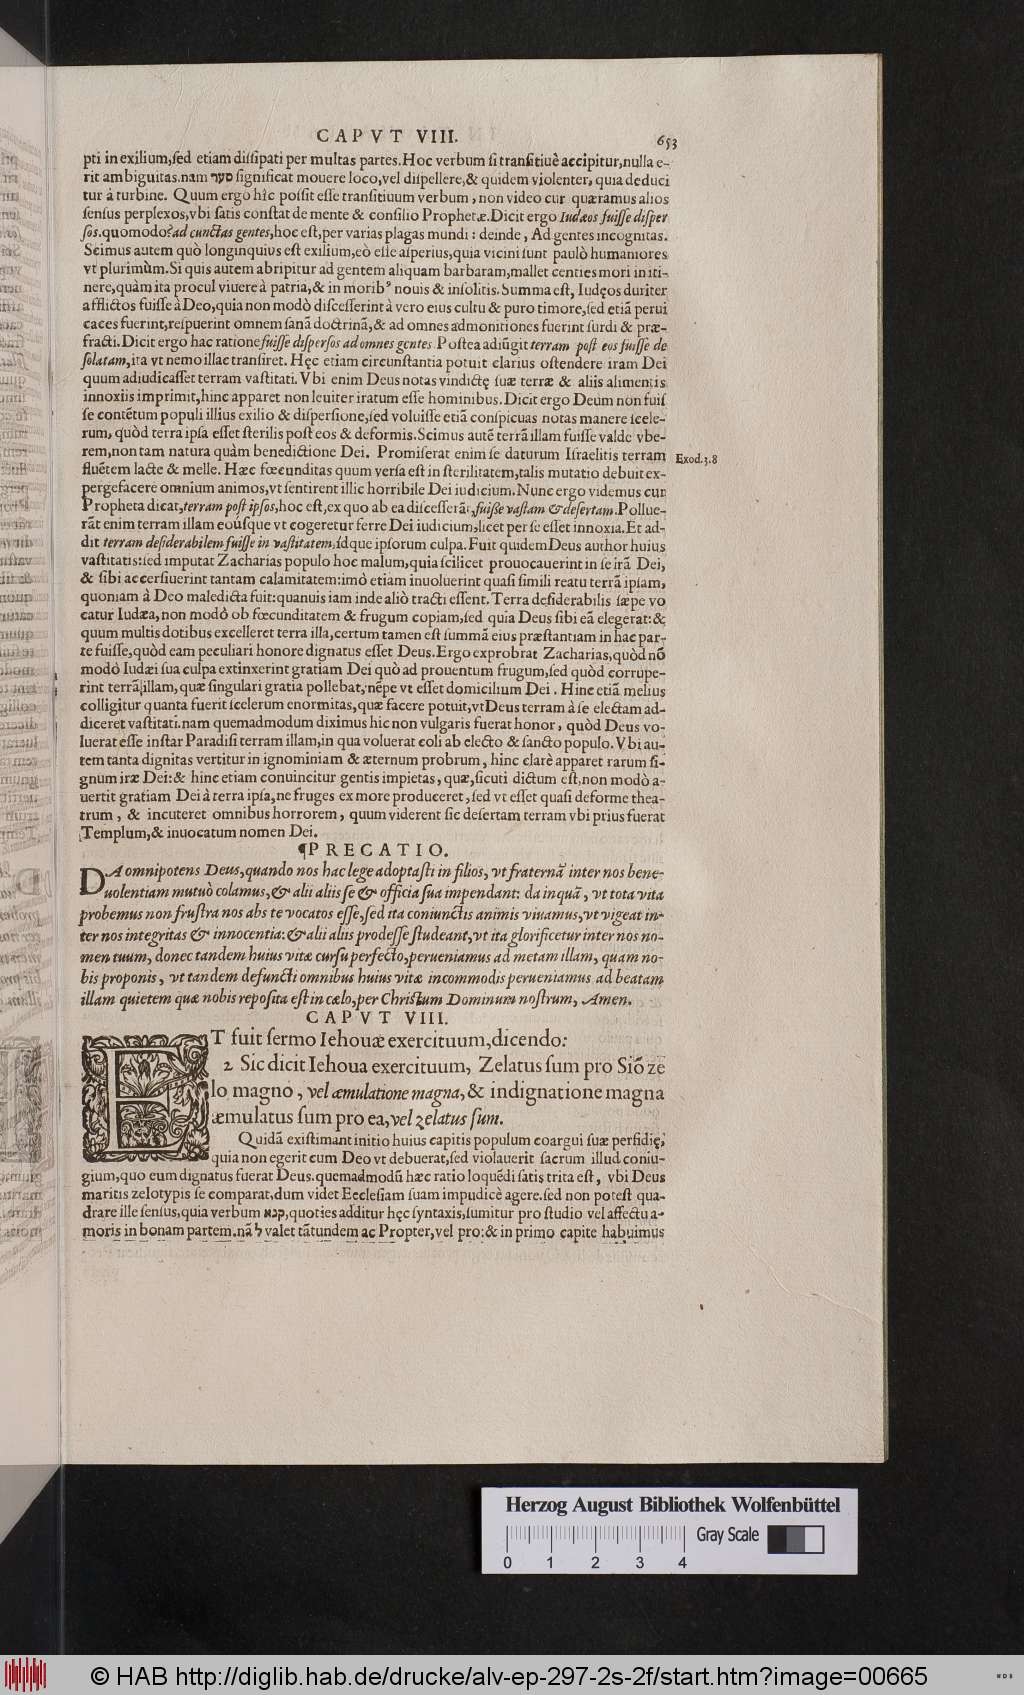 CAPVT VIII.
653
pti in exilium,ſed etiam diſsipati per multas partes.Hoc verbum ſi tranſitiuè accipitur,nulla e-
rit ambiguitas.nam סער ſignificat mouere loco,vel diſpellere,& quidem violenter, quia deduci
tur à turbine. Quum ergo hîc poſsit eſſe tranſitiuum verbum, non video cur quæramus alios
ſenſus perplexos,vbi ſatis conſtat de mente & conſilio Prophetæ.Dicit ergo Iudæos fuiſſe diſper
ſos.quomodo?ad cunctas gentes,hoc eſt,per varias plagas mundi: deinde, Ad gentes incognitas.
Scimus autem quò longinquius eſt exilium,eò eſſe aſperius,quia vicini ſunt paulò humaniores
vt plurimùm.Si quis autem abripitur ad gentem aliquam barbaram,mallet centies mori in iti-
nere,quàm ita procul viuere à patria,& in moribꝰ nouis & inſolitis.Summa eſt, Iudęos duriter
afflictos fuiſſe à Deo,quia non modò diſceſſerint à vero eius cultu & puro timore,ſed etiã perui
caces fuerint,reſpuerint omnem ſanã doctrinã,& ad omnes admonitiones fuerint ſurdi & præ-
fracti.Dicit ergo hac ratione fuiſſe diſperſos ad omnes gentes Poſtea adiũgit terram poſt eos fuiſſe de
ſolatam,ita vt nemo illac tranſiret. Hęc etiam circunſtantia potuit clarius oſtendere iram Dei
quum adiudicaſſet terram vaſtitati. Vbi enim Deus notas vindictę ſuæ terræ & aliis alimentis
innoxiis imprimit,hinc apparet non leuiter iratum eſſe hominibus. Dicit ergo Deum non fuiſ
ſe contẽtum populi illius exilio & diſperſione,ſed voluiſſe etiã conſpicuas notas manere ſcele-
rum, quòd terra ipſa eſſet ſterilis poſt eos & deformis.Scimus autẽ terrã illam fuiſſe valde vbe-
rem,non tam natura quàm benedictione Dei. Promiſerat enim ſe daturum Iſraelitis terram
Exod.3.8
fluẽtem lacte & melle. Hæc fœcunditas quum verſa eſt in ſterilitatem,talis mutatio debuit ex-
pergefacere omnium animos,vt ſentirent illic horribile Dei iudicium.Nunc ergo videmus cur
Propheta dicat,terram poſt ipſos,hoc eſt,ex quo ab ea diſceſſerãt,fuiſſe vaſtam & deſertam.Pollue-
rãt enim terram illam eoúſque vt cogeretur ferre Dei iudicium,licet per ſe eſſet innoxia.Et ad-
dit terram deſiderabilem fuiſſe in vaſtitatem,idque ipſorum culpa. Fuit quidem Deus author huius
vaſtitatis:ſed imputat Zacharias populo hoc malum,quia ſcilicet prouocauerint in ſe irã Dei,
& ſibi accerſiuerint tantam calamitatem:imò etiam inuoluerint quaſi ſimili reatu terrã ipſam,
quoniam à Deo maledicta fuit:quanuis iam inde aliò tracti eſſent. Terra deſiderabilis ſæpe vo
catur Iudæa,non modò ob fœcunditatem & frugum copiam,ſed quia Deus ſibi eã elegerat:&
quum multis dotibus excelleret terra illa,certum tamen eſt ſummã eius præſtantiam in hac par-
te fuiſſe,quòd eam peculiari honore dignatus eſſet Deus.Ergo exprobrat Zacharias,quòd nõ
modò Iudæi ſua culpa extinxerint gratiam Dei quò ad prouentum frugum,ſed quòd corrupe-
rint terrã illam, quæ ſingulari gratia pollebat, nẽpe vt eſſet domicilium Dei. Hinc etiã melius
colligitur quanta fuerit ſcelerum enormitas,quæ facere potuit,vt Deus terram à ſe electam ad-
diceret vaſtitati.nam quemadmodum diximus hic non vulgaris fuerat honor, quòd Deus vo-
luerat eſſe inſtar Paradiſi terram illam,in qua voluerat coli ab electo & ſancto populo.Vbi au-
tem tanta dignitas vertitur in ignominiam & æternum probrum, hinc clarè apparet rarum ſi-
gnum iræ Dei:& hinc etiam conuincitur gentis impietas, quæ,ſicuti dictum eſt,non modò a-
uertit gratiam Dei à terra ipſa,ne fruges ex more produceret,ſed vt eſſet quaſi deforme thea-
trum, & incuteret omnibus horrorem, quum viderent ſic deſertam terram vbi prius fuerat
Templum,& inuocatum nomen Dei.
¶PRECATIO.
DA omnipotens Deus,quando nos hac lege adoptaſti in filios, vt fraternã inter nos bene-
uolentiam mutuò colamus,& alii aliis ſe & officia ſua impendant: da inquã, vt tota vita
probemus non fruſtra nos abs te vocatos eſſe,ſed ita coniunctis animis viuamus,vt vigeat in-
ter nos integritas & innocentia:& alii aliis prodeſſe ſtudeant,vt ita glorificetur inter nos no-
men tuum, donec tandem huius vitæ curſu perfecto,perueniamus ad metam illam, quam no-
bis proponis, vt tandem defuncti omnibus huius vitæ incommodis perueniamus ad beatam
illam quietem quæ nobis repoſita eſt in cælo,per Chriſtum Dominum noſtrum, Amen.
CAPVT VIII.
ET fuit ſermo Iehouæ exercituum,dicendo:
2 Sic dicit Iehoua exercituum, Zelatus ſum pro Siõ ze
lo magno, vel æmulatione magna,& indignatione magna
æmulatus ſum pro ea,vel zelatus ſum.
Quidã exiſtimant initio huius capitis populum coargui ſuæ perfidię,
quia non egerit cum Deo vt debuerat,ſed violauerit ſacrum illud coniu-
gium,quo eum dignatus fuerat Deus.quemadmodũ hæc ratio loquẽdi ſatis trita eſt, vbi Deus
maritis zelotypis ſe comparat,dum videt Eccleſiam ſuam impudicè agere.ſed non poteſt qua-
drare ille ſenſus,quia verbum קנא,quoties additur hęc ſyntaxis,ſumitur pro ſtudio vel affectu a-
moris in bonam partem.nã ל valet tãtundem ac Propter,vel pro:& in primo capite habuimus
Herzog August Bibliothek Wolfenbüttel
Gray Scale
0 1 2 3 4
© HAB http://diglib.hab.de/drucke/alv-ep-297-2s-2f/start.htm?image=00665
WDB